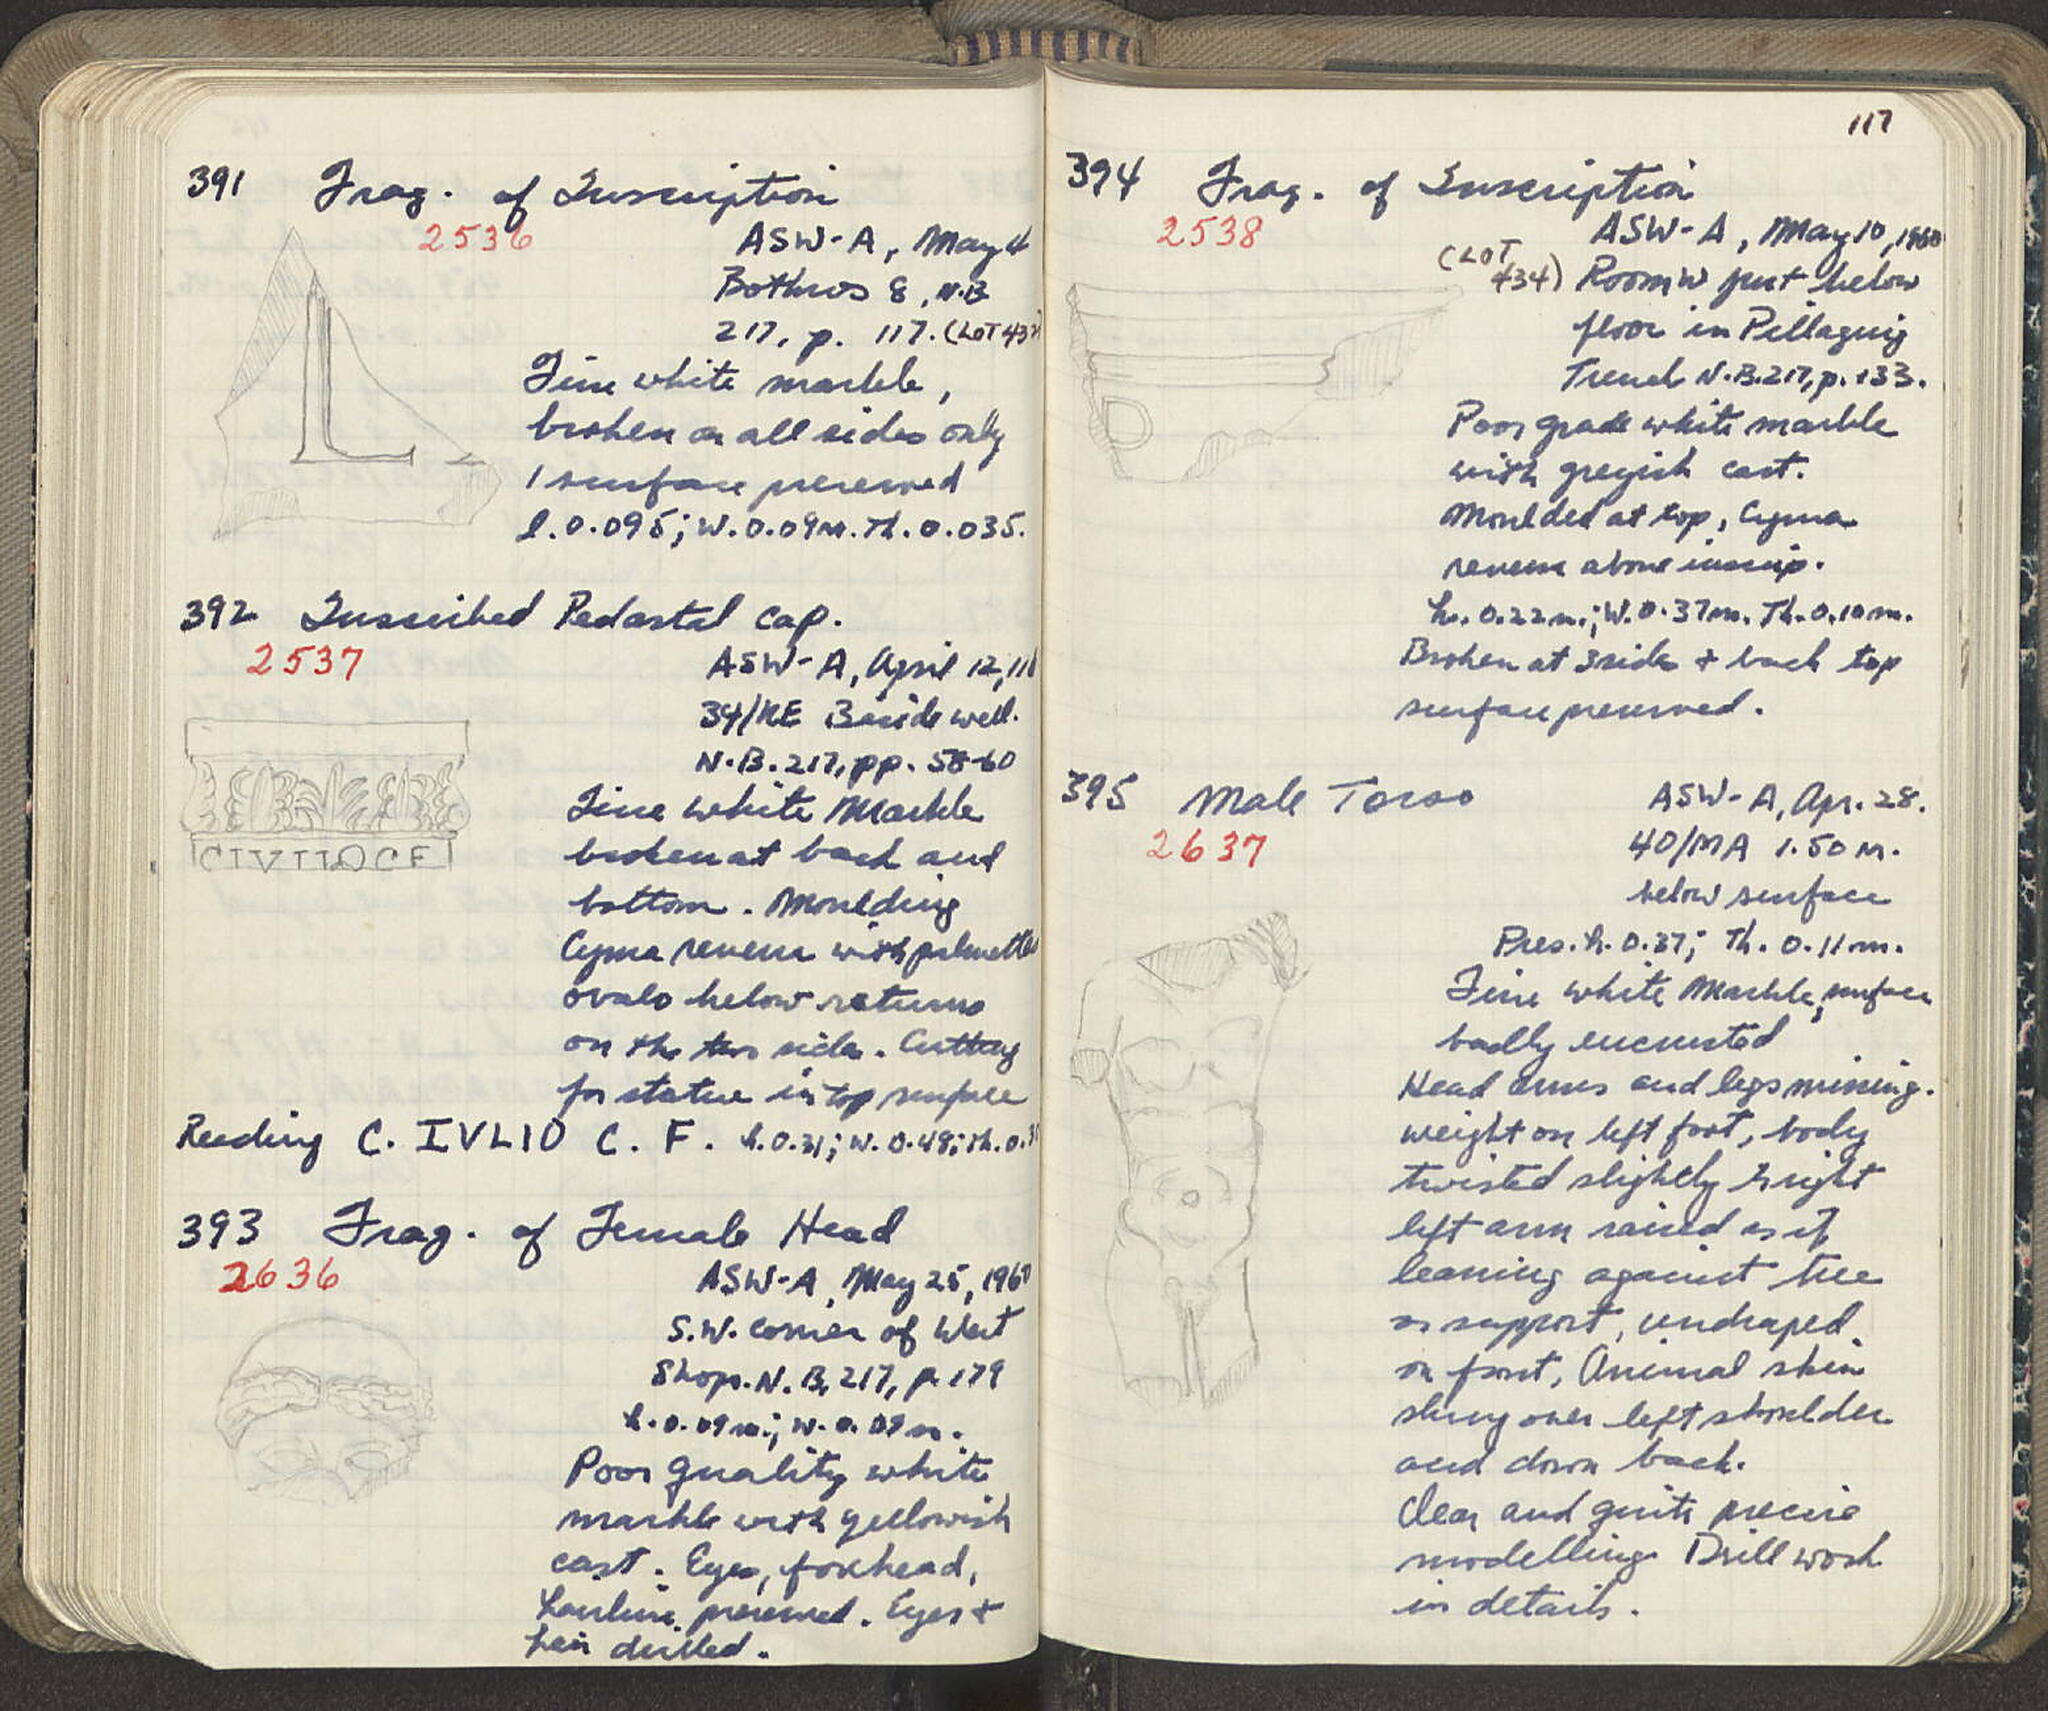 391 Frag. of Inscription
2536
ASW-A, May 4
Bothros 8, N.B.
217, p. 117. (LOT 432)
Fine white marble,
broken on all sides only
1 surface preserved
l. 0.095; W. 0.09m. Th. 0.035.
392 Inscribed Pedastal cap.
2537
ASW-A, April 12, 11
34/KE Beside well.
N.B. 217, pp. 58-60
CIVLIOCF
Fine white Marble
broken at back and
bottom. Moulding
Cyma reversa with palmettes
ovalo below returns
on the two sides. Cutting
for statue in top surface
Reading C. IVLIO C. F. h. 0.31; W. 0.48; Th. 0.3
393 Frag. of Female Head
2636
ASW-A, May 25, 1960
S.W. corner of West
Shop. N.B. 217, p 179
h. 0.09m.; W. 0.09m.
Poor quality white
marble with yellowish
cast. Eyes, forehead,
hairline preserved. Eyes +
hair drilled.
117
394 Frag. of Inscription
2538
ASW-A, May 10, 1960
(LOT 434) Room W just below
floor in Pillaging
Trench N.B. 217, p. 133.
Poor grade white marble
with greyish cast.
Moulded at top, Cyma
reversa above inscrip.
h. 0.22m.; W. 0.37m. Th. 0.10m.
Broken at 3 sides + back top
surface preserved.
395 Male Torso
2637
ASW-A, Apr. 28.
40/MA 1.50 m.
below surface
Pres. h. 0.37; Th. 0.11m.
Fine white Marble, surface
badly encrusted
Head arms and legs missing.
weight on left foot, body
twisted slightly to right
left arm raised as if
leaning against tree
or support, undraped
on front, Animal skin
slung over left shoulder
and down back.
Clear and quite precise
modelling. Drill work
in details.